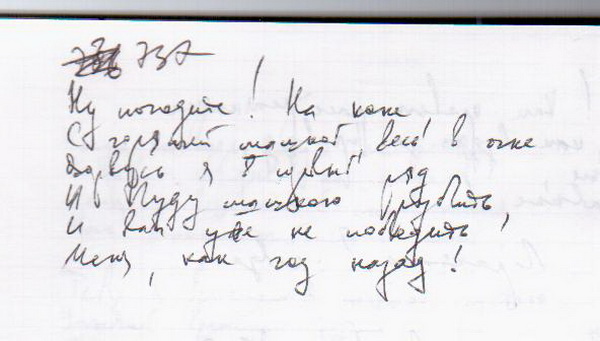 Ну погодите! На коне
С горячей шашкой весь в огне
Ворвусь я в первый ряд
И буду шашкою рубить,
И вам уже не победить
Меня, как год назад!